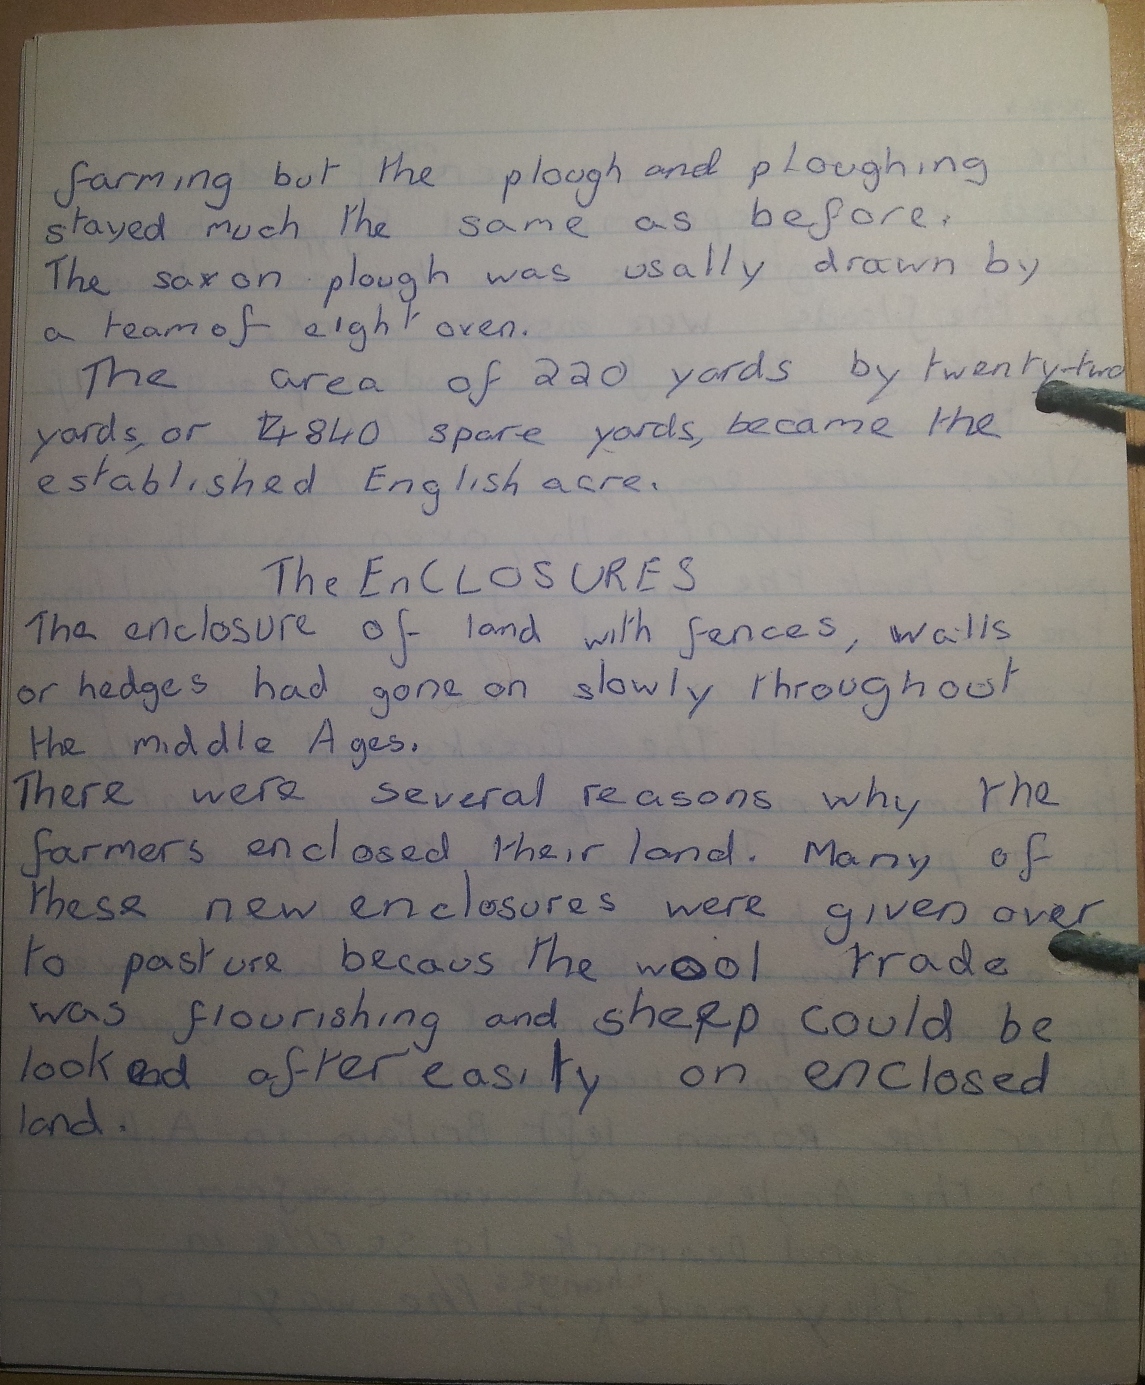 farming but the plough and ploughing
stayed much the same as before.
The saxon plough was usally drawn by
a team of eight oxen.
The area of 220 yards by twenty-two
yards, or 4840 spare yards, became the
established English acre.
The EnCLOSURES
The enclosure of land with fences, walls
or hedges had gone on slowly throughout
the middle Ages.
There were several reasons why the
farmers enclosed their land. Many of
these new enclosures were given over
to pasture becaus the wool trade
was flourishing and sheep could be
looked after easily on enclosed
land.